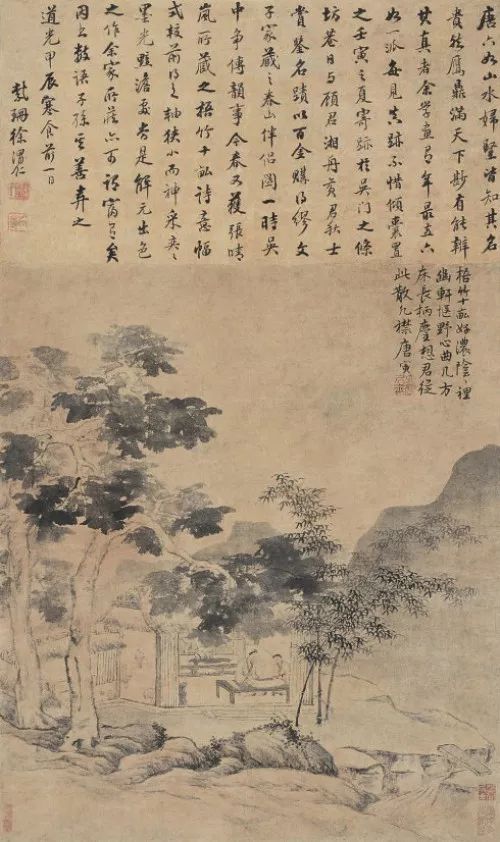 唐六如山水婦竪皆知其名
貴然贗鼎滿天下尠有能辨
其真者余學畫有年最喜六
如一派每見真跡不惜傾囊置
之壬寅之夏寄跡於吳門之條
坊巷日与顧君湘舟黃君秋士
賞鑒名蹟以百金購得繆文
子家藏之春山伴侶圖一時吳
中爭傳韻事今春又獲張晴
嵐所藏之梧竹十畝詩意幅
式較前得之軸狹小而神采奕〻
墨光黝澹處當是解元出色
之作余家所藏亦可稱富有矣
因之語子孫其善弆之
道光甲辰寒食前一日
紫珊徐渭仁
梧竹十畝好濃陰〻裡
幽軒愜野心曲几方
床長柄麈想君從
此散冗襟唐寅